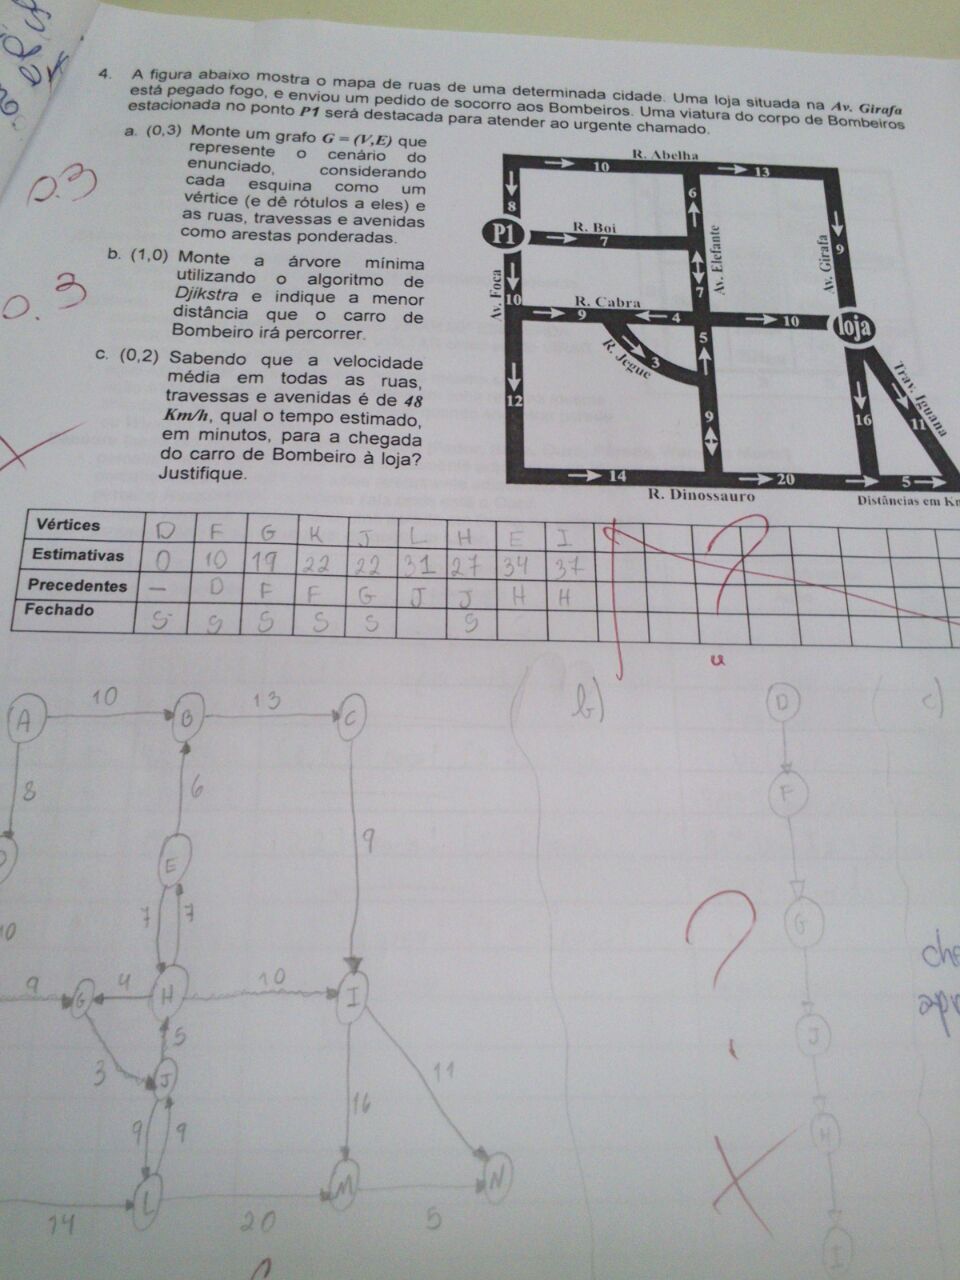 4. A figura abaixo mostra o mapa de ruas de uma determinada cidade. Uma loja situada na Av. Girafa
está pegado fogo, e enviou um pedido de socorro aos Bombeiros. Uma viatura do corpo de Bombeiros
estacionada no ponto P1 será destacada para atender ao urgente chamado.
a. (0,3) Monte um grafo G = (V,E) que
represente o cenário do
enunciado, considerando
cada esquina como um
vértice (e dê rótulos a eles) e
as ruas, travessas e avenidas
como arestas ponderadas.
b. (1,0) Monte a árvore mínima
utilizando o algoritmo de
Djikstra e indique a menor
distância que o carro de
Bombeiro irá percorrer.
c. (0,2) Sabendo que a velocidade
média em todas as ruas,
travessas e avenidas é de 48
Km/h, qual o tempo estimado,
em minutos, para a chegada
do carro de Bombeiro à loja?
Justifique.
0.3
0.3
R. Abelha
10
13
8
6
P1
R. Boi
7
Av. Elefante
Av. Girafa
9
7
Av. Foca
10
R. Cabra
9
4
10
loja
5
R. Jegue
3
Trav. Iguana
12
9
16
11
14
20
5
R. Dinossauro
Distâncias em K
Vértices D F G K J L H E I
Estimativas 0 10 19 22 22 31 27 34 37
Precedentes — D F F G J J H H
Fechado S S S S S S
?
A 10 B 13 C
8
6
9
E
7 7
10
9 G 4 H 10 I
5
3
J
9 9
16
11
L
M
N
14
20
5
b)
D
F
G
J
H
I
?
c)